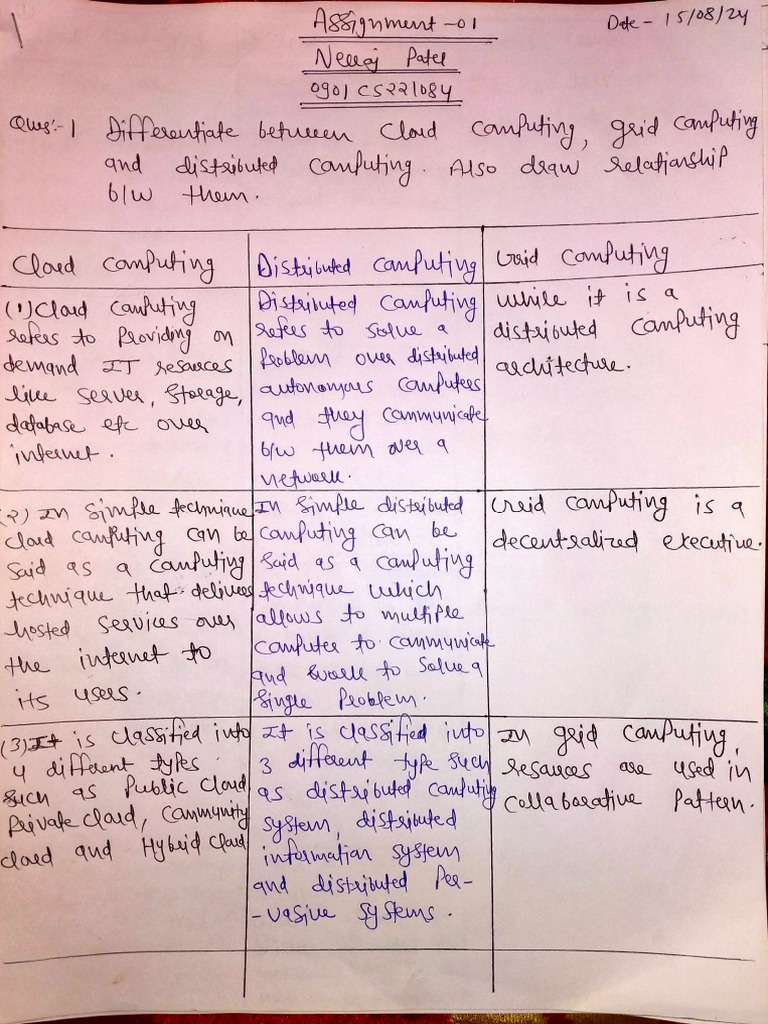 Assignment - 01
Date - 15/08/24
Neeraj Patel
0901CS221084
Ques:- 1 Differentiate between Cloud Computing, grid computing
and distributed computing. Also draw relationship
b/w them.
Cloud Computing
(1) Cloud Computing
refers to Providing on
demand IT resources
like server, storage,
database etc over
internet.
(2) In simple technique
cloud computing can be
said as a computing
technique that delivers
hosted services over
the internet to
its users.
(3) It is classified into
4 different types
such as Public Cloud
Private cloud, Community
cloud and Hybrid cloud
Distributed Computing
Distributed Computing
refers to solve a
Problem over distributed
autonomous computers
and they communicate
b/w them over a
network.
In simple distributed
computing can be
said as a computing
technique which
allows to multiple
computer to communicate
and work to solve a
single Problem.
It is classified into
3 different type such
as distributed computing
system, distributed
information system
and distributed Per-
-vasive systems.
Grid Computing
while it is a
distributed computing
architecture.
Grid computing is a
decentralized executive.
In grid computing,
resources are used in
collaborative Pattern.